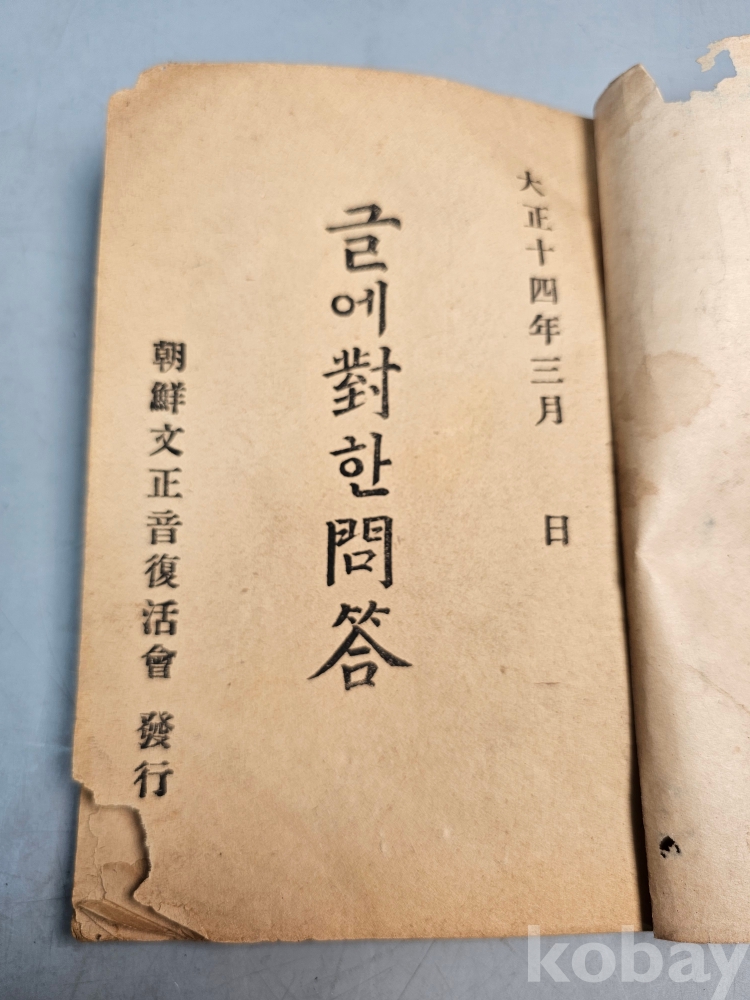 大正十四年三月 日
글에對한問答
朝鮮文正音復活會 發行
kobay